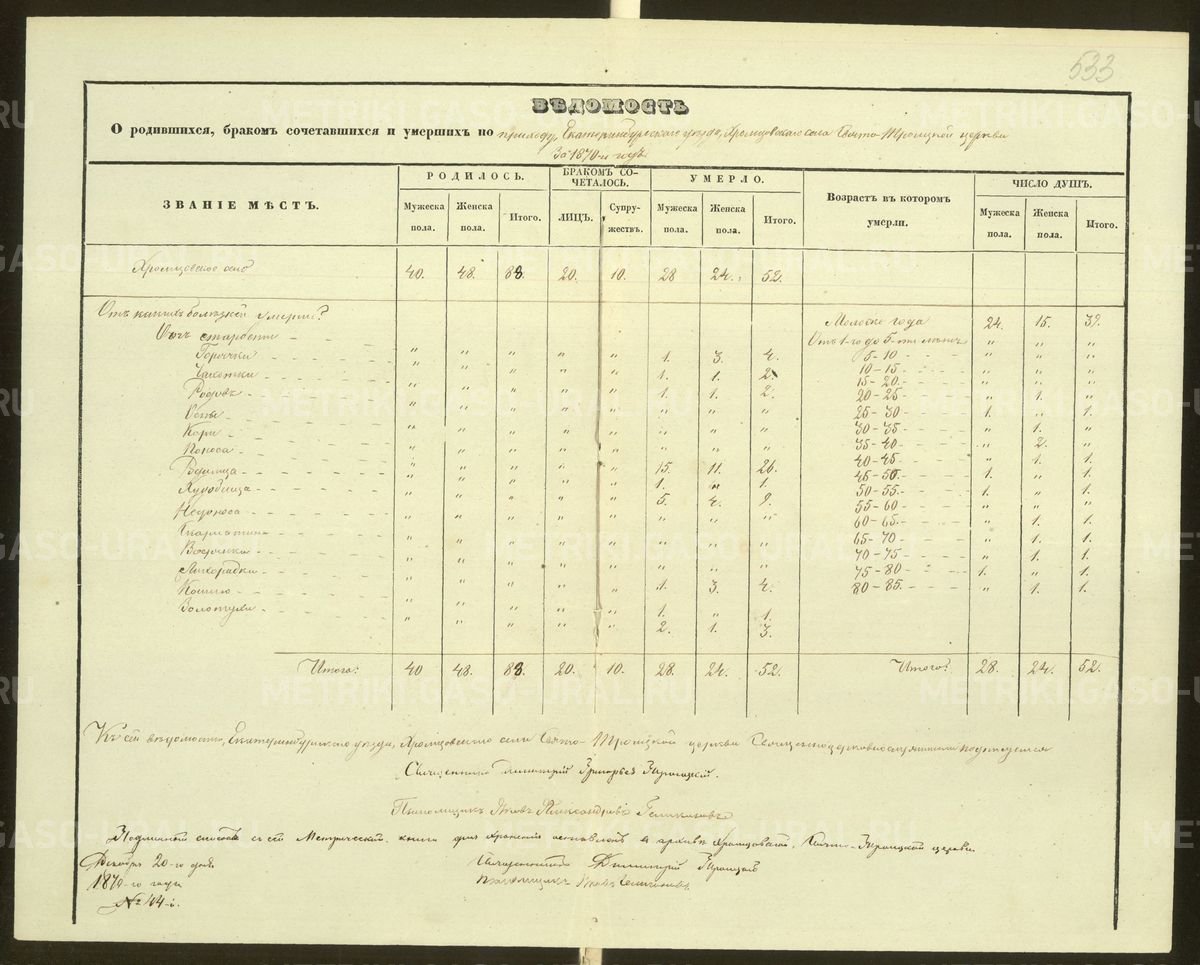 533
ВѢДОМОСТЬ
О родившихся, бракомъ сочетавшихся и умершихъ по приходу, Екатеринбургскаго уѣзда, Хромцовскаго села Свято-Троицкой церкви
За 1870-й годъ
ЗВАНІЕ МѢСТЪ. РОДИЛОСЬ. БРАКОМЪ СОЧЕТАЛОСЬ. УМЕРЛО. Возрастъ въ которомъ умерли. ЧИСЛО ДУШЪ.
Мужеска пола. Женска пола. Итого. ЛИЦЪ. Супружествъ. Мужеска пола. Женска пола. Итого. Мужеска пола. Женска пола. Итого.
Хромцовское село 40. 48. 88. 20. 10. 28 24. 52.
Отъ какихъ болѣзней умерли?
Отъ старости 1. 3. 4.
Горячки 1. 1. 2.
Чахотки 1. 1. 2.
Родовъ
Оспы
Кори
Поноса 15. 11. 26.
Родимца 1. " 1.
Худобища 5. 4. 9.
Недоноса
Скарлатины
Водянки
Лихорадки 1. 3. 4.
Кашлю 1. 1.
Золотухи 2. 1. 3.
Моложе года 24. 15. 39.
Отъ 1-го до 5-ти лѣтъ " " "
5-10 " " "
10-15 " " "
15-20 " " "
20-25 " 1. "
25-30 1. " 1.
30-35 " 1. "
35-40 " 2. "
40-45 " 1. 1.
45-50 1. " 1.
50-55 1. " 1.
55-60 " " "
60-65 " 1. 1.
65-70 " 1. 1.
70-75 " 1. 1.
75-80 1. " 1.
80-85 " 1. 1.
Итого: 40 48. 88. 20. 10. 28. 24. 52. Итого? 28. 24. 52.
Къ сей вѣдомости, Екатеринбургскаго уѣзда, Хромцовскаго села Свято-Троицкой церкви Священноцерковнослужители подписуемся
Священникъ Димитрій Григорьевъ Троицкій.
Псаломщикъ Яковъ Александровъ
Подлинной списокъ съ сей Метрической книги для храненія оставленъ въ архивѣ Хромцовской, Свято-Троицкой церкви.
Декабря 20-го дня
1870-го года
№ 44-й.
Священникъ Димитрій Троицкій
Псаломщикъ Яковъ
METRIKI.GASO-URAL.RU